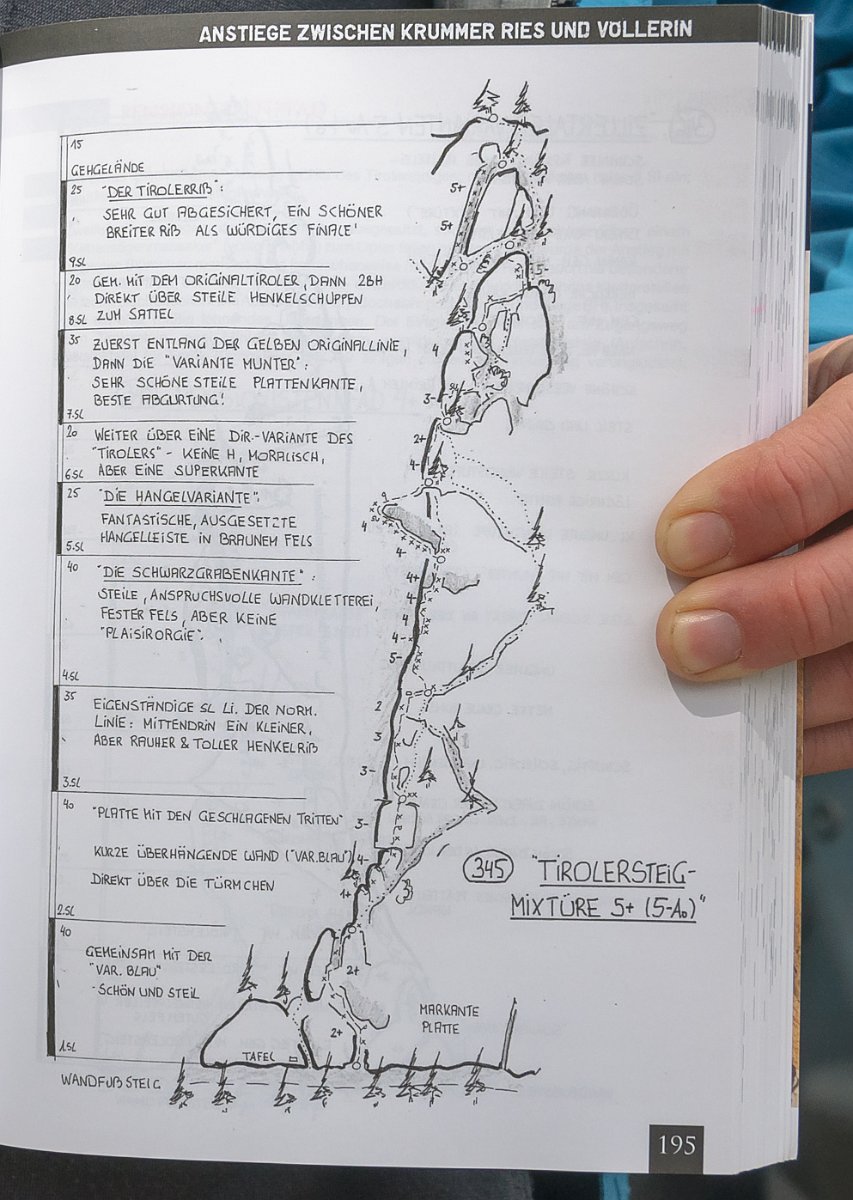 ANSTIEGE ZWISCHEN KRUMMER RIES UND VÖLLERIN
15
GEHGELÄNDE
25 "DER TIROLERRIß":
SEHR GUT ABGESICHERT, EIN SCHÖNER
BREITER RIß ALS WÜRDIGES FINALE'
9.SL
20 GEM. MIT DEM ORIGINALTIROLER, DANN 2BH
DIREKT ÜBER STEILE HENKELSCHUPPEN
8.SL ZUM SATTEL
35 ZUERST ENTLANG DER GELBEN ORIGINALLINIE,
DANN DIE "VARIANTE MUNTER":
SEHR SCHÖNE STEILE PLATTENKANTE,
BESTE ABGURTUNG!
7.SL
20 WEITER ÜBER EINE DIR.-VARIANTE DES
"TIROLERS" - KEINE H, MORALISCH,
6.SL ABER EINE SUPERKANTE
25 "DIE HANGELVARIANTE":
FANTASTISCHE, AUSGESETZTE
5.SL HANGELLEISTE IN BRAUNEM FELS
40 "DIE SCHWARZGRABENKANTE":
STEILE, ANSPRUCHSVOLLE WANDKLETTEREI,
FESTER FELS, ABER KEINE
"PLAISIRORGIE".
4.SL
35 EIGENSTÄNDIGE SL LI. DER NORM.
LINIE: MITTENDRIN EIN KLEINER,
ABER RAUHER & TOLLER HENKELRIß
3.SL
40 "PLATTE MIT DEN GESCHLAGENEN TRITTEN"
KURZE ÜBERHÄNGENDE WAND ("VAR.BLAU")
DIREKT ÜBER DIE TÜRMCHEN
2.SL
40
GEMEINSAM MIT DER
"VAR. BLAU"
- SCHÖN UND STEIL
1.SL
WANDFUßSTEIG
5+
5+
5-
4
3-
2+
4-
4
4-
4+
4
4
4-
5-
2
3
3-
3-
4-
1+
2+
2+
TAFEL
MARKANTE
PLATTE
345 "TIROLERSTEIG-
MIXTÜRE 5+ (5-A0)"
195